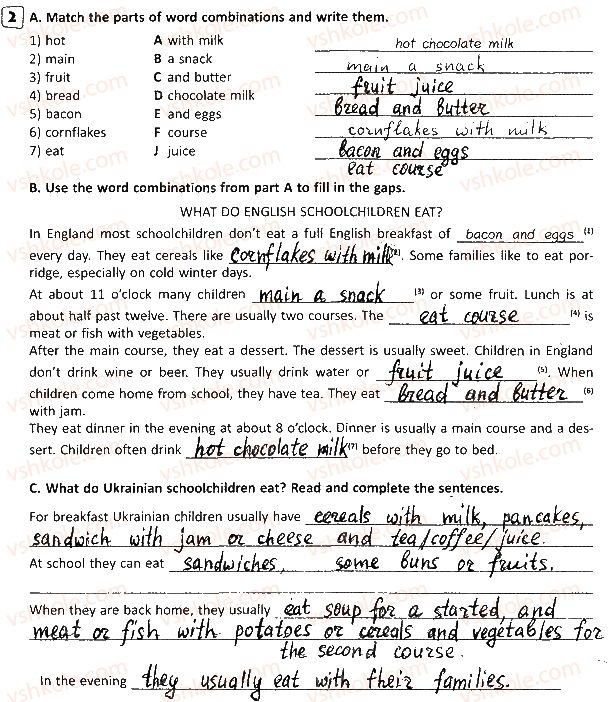 2 A. Match the parts of word combinations and write them.
1) hot A with milk hot chocolate milk
2) main B a snack main a snack
3) fruit C and butter fruit juice
4) bread D chocolate milk bread and butter
5) bacon E and eggs cornflakes with milk
6) cornflakes F course bacon and eggs
7) eat J juice eat course
B. Use the word combinations from part A to fill in the gaps.
WHAT DO ENGLISH SCHOOLCHILDREN EAT?
In England most schoolchildren don't eat a full English breakfast of bacon and eggs (1)
every day. They eat cereals like cornflakes with milk (2). Some families like to eat por-
ridge, especially on cold winter days.
At about 11 o'clock many children main a snack (3) or some fruit. Lunch is at
about half past twelve. There are usually two courses. The eat course (4) is
meat or fish with vegetables.
After the main course, they eat a dessert. The dessert is usually sweet. Children in England
don't drink wine or beer. They usually drink water or fruit juice (5). When
children come home from school, they have tea. They eat bread and butter (6)
with jam.
They eat dinner in the evening at about 8 o'clock. Dinner is usually a main course and a des-
sert. Children often drink hot chocolate milk (7) before they go to bed.
C. What do Ukrainian schoolchildren eat? Read and complete the sentences.
For breakfast Ukrainian children usually have cereals with milk, pancakes,
sandwich with jam or cheese and tea/coffee/juice.
At school they can eat sandwiches, some buns or fruits.
When they are back home, they usually eat soup for a started, and
meat or fish with potatoes or cereals and vegetables for
the second course.
In the evening they usually eat with their families.